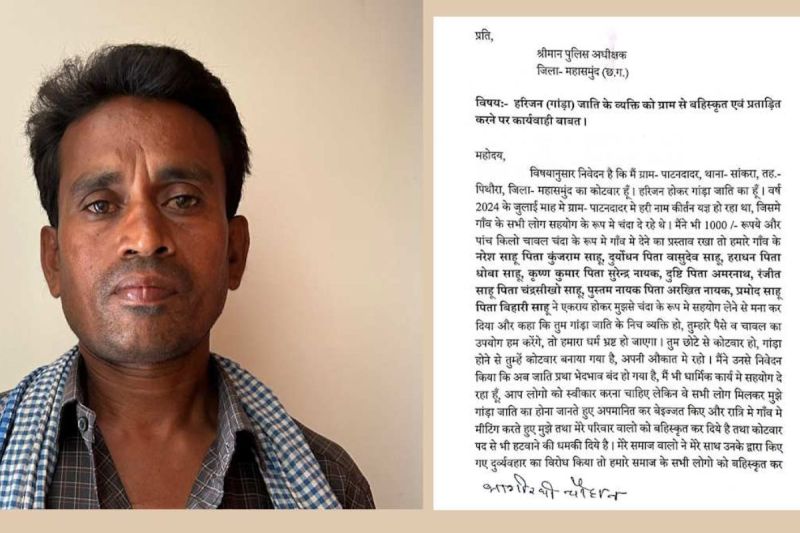 प्रति,
श्रीमान पुलिस अधीक्षक
जिला- महासमुंद (छ.ग.)
विषयः- हरिजन (गांड़ा) जाति के व्यक्ति को ग्राम से बहिस्कृत एवं प्रताड़ित
करने पर कार्यवाही बाबत।
महोदय,
विषयानुसार निवेदन है कि मैं ग्राम- पाटनदादर, थाना- सांकरा, तह.-
पिथौरा, जिला- महासमुंद का कोटवार हूँ। हरिजन होकर गांड़ा जाति का हूँ। वर्ष
2024 के जुलाई माह मे ग्राम- पाटनदादर मे हरी नाम कीर्तन यज्ञ हो रहा था, जिसमे
गाँव के सभी लोग सहयोग के रूप मे चंदा दे रहे थे। मैंने भी 1000 /- रूपये और
पांच किलो चावल चंदा के रूप मे गाँव मे देने का प्रस्ताव रखा तो हमारे गाँव के
नरेश साहू पिता कुंजराम साहू, दुर्योधन पिता वासुदेव साहू, हराधन पिता
धोबा साहू, कृष्ण कुमार पिता सुरेन्द्र नायक, दुष्टि पिता अमरनाथ, रंजीत
साहू पिता चंद्रसीखो साहू, पुस्तम नायक पिता अरखित नायक, प्रमोद साहू
पिता बिहारी साहू ने एकराय होकर मुझसे चंदा के रूप मे सहयोग लेने से मना कर
दिया और कहा कि तुम गांड़ा जाति के निच व्यक्ति हो, तुम्हारे पैसे व चावल का
उपयोग हम करेंगे, तो हमारा धर्म भ्रष्ट हो जाएगा। तुम छोटे से कोटवार हो, गांड़ा
होने से तुम्हें कोटवार बनाया गया है, अपनी औकात मे रहो। मैंने उनसे निवेदन
किया कि अब जाति प्रथा भेदभाव बंद हो गया है, मैं भी धार्मिक कार्य मे सहयोग दे
रहा हूँ, आप लोगो को स्वीकार करना चाहिए लेकिन वे सभी लोग मिलकर मुझे
गांड़ा जाति का होना जानते हुए अपमानित कर बेइज्जत किए और रात्रि मे गाँव मे
मीटिंग करते हुए मुझे तथा मेरे परिवार वालो को बहिस्कृत कर दिये है तथा कोटवार
पद से भी हटवाने की धमकी दिये है। मेरे समाज वालो ने मेरे साथ उनके द्वारा किए
गए दुर्व्यवहार का विरोध किया तो हमारे समाज के सभी लोगो को बहिस्कृत कर
भागीरथी चौहान